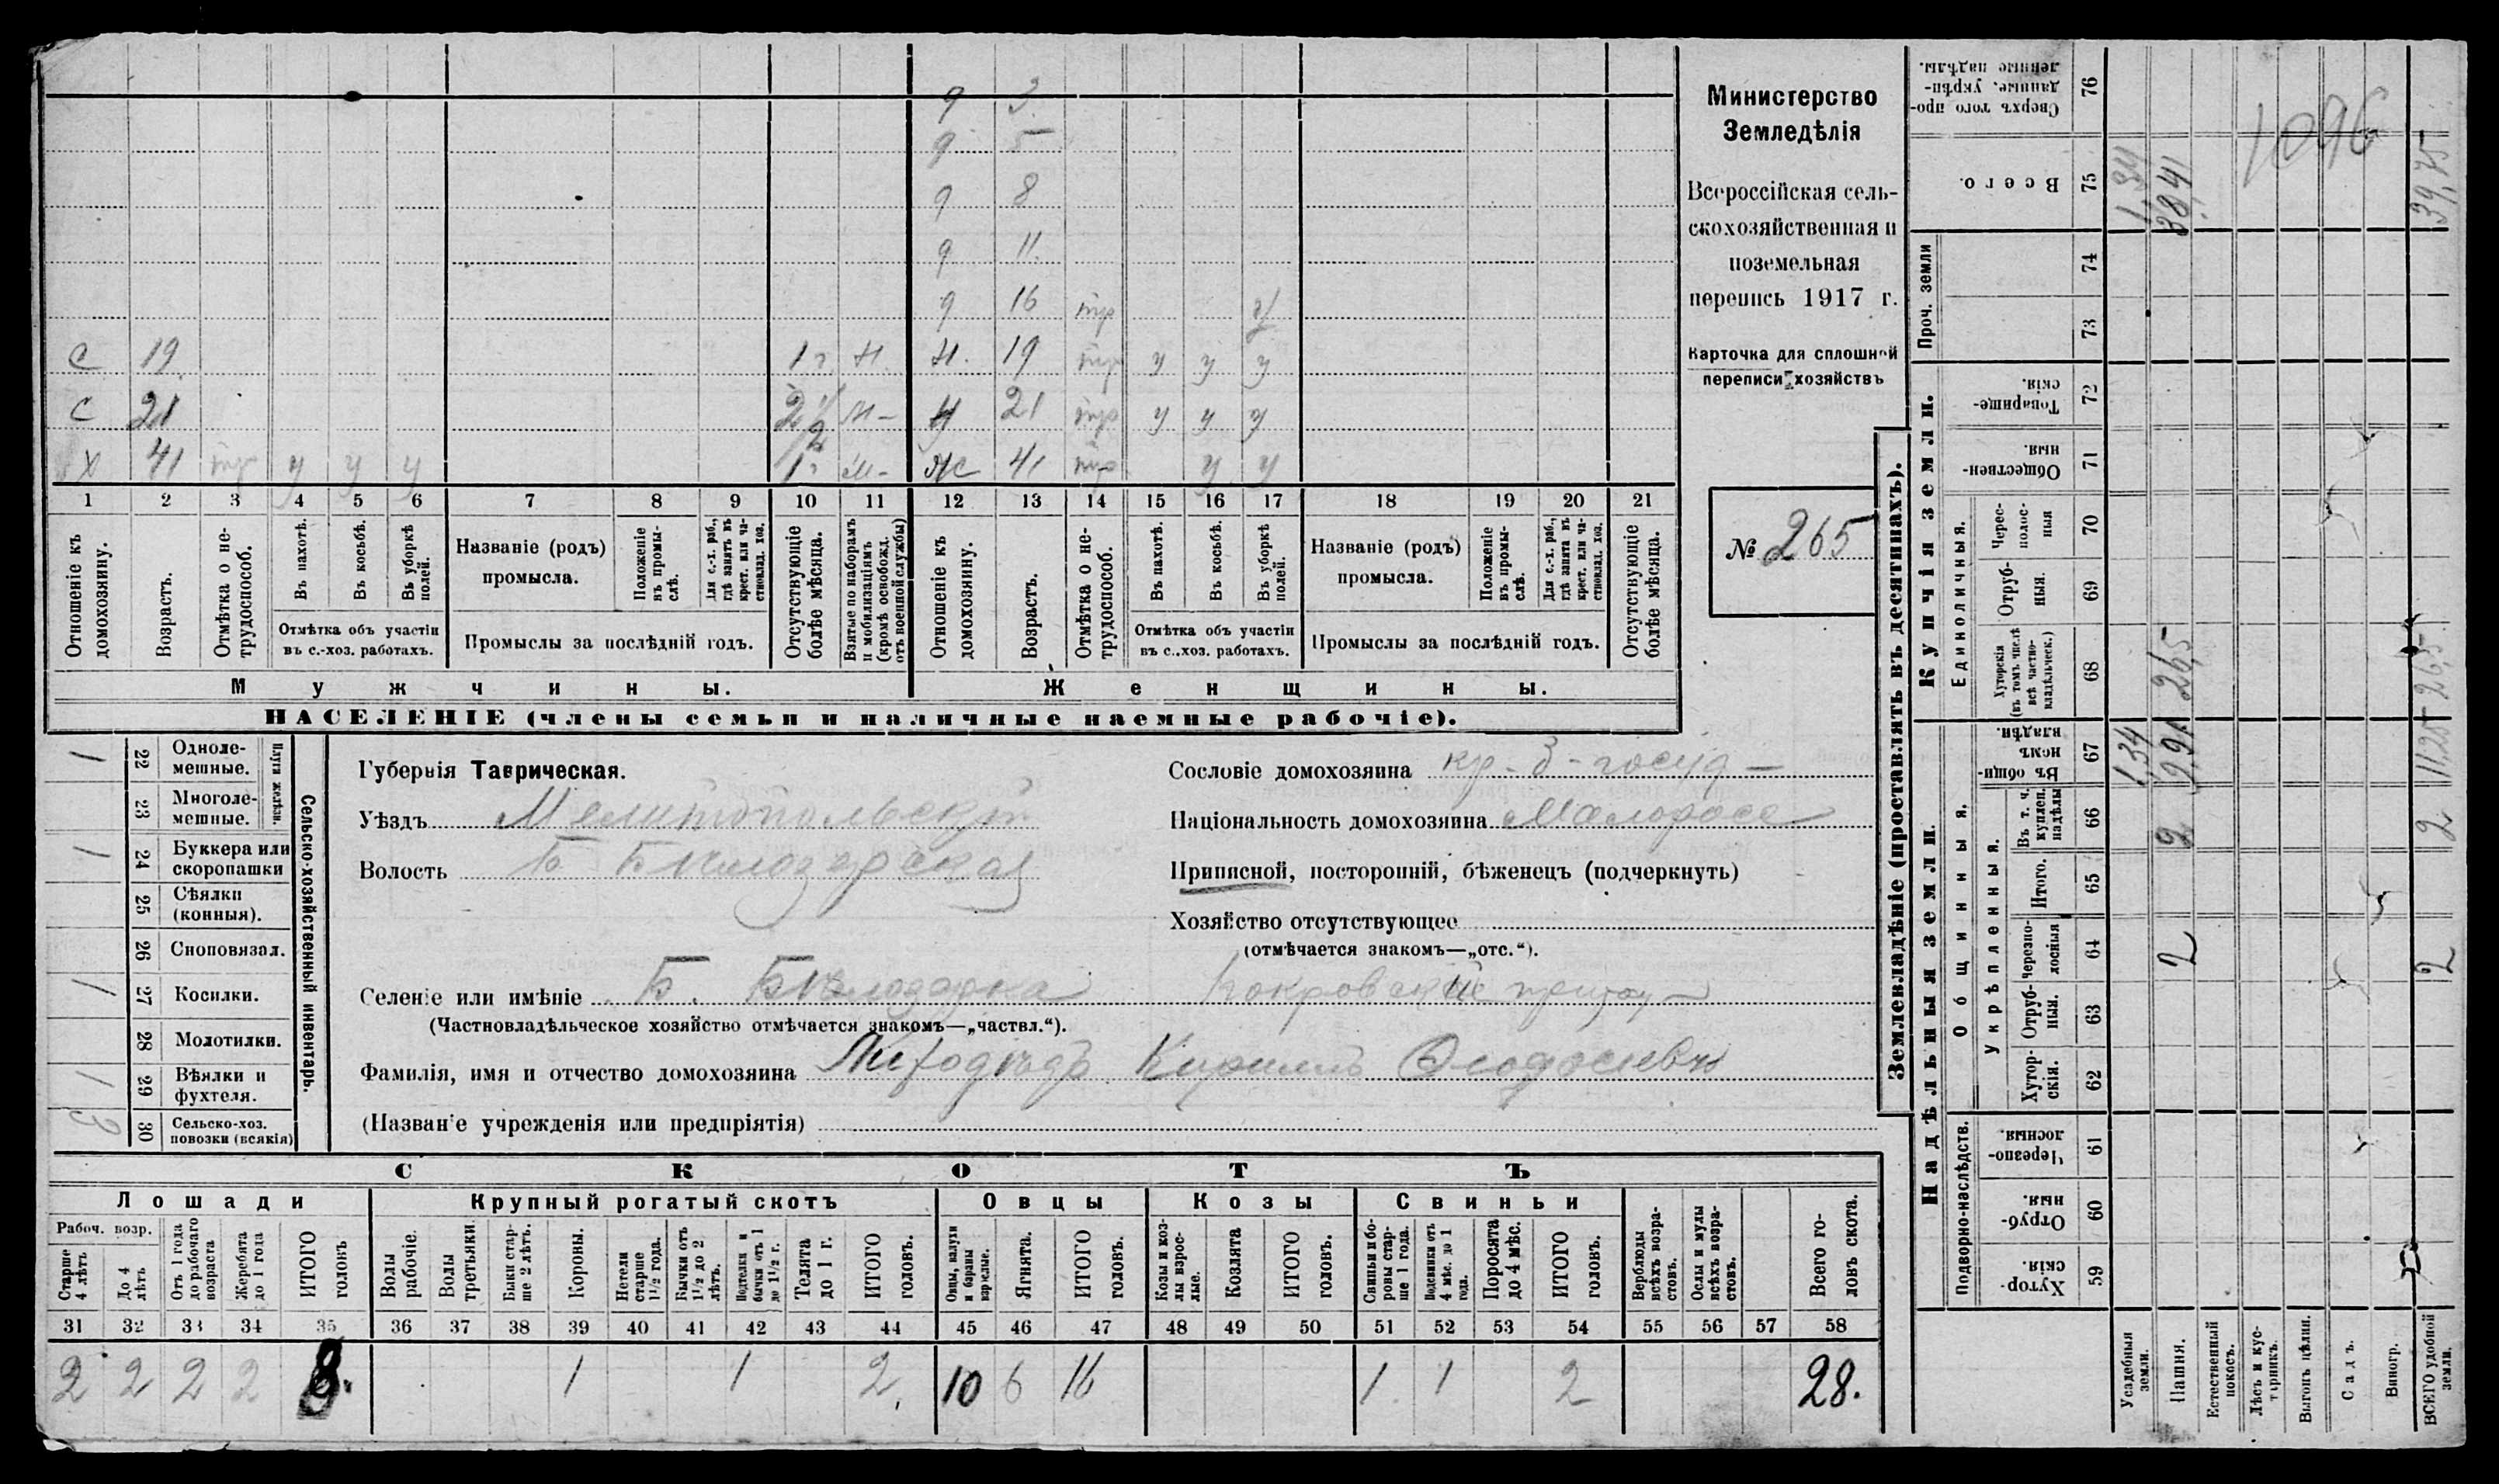 9 3
9 5
9 8
9 11
9 16 тр у
С 19 1 г. Н. Н. 19 тр у у у
С 21 2 1/2 м- Н 21 тр у у у
Х 41 тр у у у 1 г м- Ж 41 тр у у
1 2 3 4 5 6 7 8 9 10 11 12 13 14 15 16 17 18 19 20 21
Отношеніе къ домохозяину.
Возрастъ.
Отмѣтка о нетрудоспособ.
Въ пахотѣ.
Въ косьбѣ.
Въ уборкѣ полей.
Отмѣтка объ участіи
въ с.-хоз. работахъ.
Названіе (родъ)
промысла.
Положеніе въ промыслѣ.
Для с.-х. раб., гдѣ занятъ въ крест. или частновлад. хоз.
Промыслы за послѣдній годъ.
Отсутствующіе болѣе мѣсяца.
Взятые по наборамъ и мобилизаціямъ (кромѣ освобожд. отъ военной службы)
Отношеніе къ домохозяину.
Возрастъ.
Отмѣтка о нетрудоспособ.
Въ пахотѣ.
Въ косьбѣ.
Въ уборкѣ полей.
Отмѣтка объ участіи
въ с.-хоз. работахъ.
Названіе (родъ)
промысла.
Положеніе въ промыслѣ.
Для с.-х. раб., гдѣ занята въ крест. или частновлад. хоз.
Промыслы за послѣдній годъ.
Отсутствующіе болѣе мѣсяца.
Мужчины.
Женщины.
НАСЕЛЕНІЕ (члены семьи и наличные наемные рабочіе).
Министерство
Земледѣлія
Всероссійская сель-
скохозяйственная и
поземельная
перепись 1917 г.
Карточка для сплошной
переписи хозяйствъ
№ 265
1 22 Одноле-мешные.
23 Многоле-мешные.
Плуги желѣзн.
1 24 Буккера или скоропашки
25 Сѣялки (конныя).
26 Сноповязал.
1 27 Косилки.
28 Молотилки.
1 29 Вѣялки и фухтеля.
3 30 Сельско-хоз. повозки (всякія)
Сельско-хозяйственный инвентарь.
Губернія Таврическая.
Уѣздъ Мелитопольскій
Волость Б Бѣлозерская
Селеніе или имѣніе Б. Бѣлозерка Покровскій приход
(Частновладѣльческое хозяйство отмѣчается знакомъ—„частвл.“).
Фамилія, имя и отчество домохозяина Кириллъ Ѳеодосіевъ
(Названіе учрежденія или предпріятія)
Сословіе домохозяина кр-з-госуд-
Національность домохозяина Малороссъ
Приписной, посторонній, бѣженецъ (подчеркнуть)
Хозяйство отсутствующее
(отмѣчается знакомъ—„отс.“).
СКОТЪ
Лошади
Крупный рогатый скотъ
Овцы
Козы
Свиньи
Рабоч. возр.
Старше 4 лѣтъ
До 4 лѣтъ
Отъ 1 года до рабочаго возраста
Жеребята до 1 года
ИТОГО головъ
Волы рабочіе.
Волы третьяки.
Быки старше 2 лѣтъ.
Коровы.
Нетели старше 1 1/2 года.
Бычки отъ 1 1/2 до 2 лѣтъ.
Подтелки и бычки отъ 1 до 1 1/2 г.
Телята до 1 г.
ИТОГО головъ.
Овцы, валухи и бараны взрослые.
Ягнята.
ИТОГО головъ.
Козы и козлы взрослые.
Козлята
ИТОГО головъ.
Свиньи и боровы старше 1 года.
Подсвинки отъ 4 мѣс. до 1 года.
Поросята до 4 мѣс.
ИТОГО головъ.
Верблюды всѣхъ возрастовъ.
Ослы и мулы всѣхъ возрастовъ.
Всего головъ скота.
31 32 33 34 35 36 37 38 39 40 41 42 43 44 45 46 47 48 49 50 51 52 53 54 55 56 57 58
2 2 2 2 8. 1 1 2. 10 6 16 1 1 2 28.
Землевладѣніе (проставлять въ десятинахъ).
Надѣльныя земли.
Купчія земли.
Проч. земли
Подворно-наслѣдств.
Общинныя.
Укрѣпленныя.
Единоличныя.
Сверхъ того проданные, укрѣпленные надѣлы. 76
Всего. 75
74
73
Товарищескія. 72
Общественныя. 71
Чересполосныя 70
Отрубныя. 69
Хуторскія (въ томъ числѣ всѣ частновладѣльческ.) 68
Въ общинномъ владѣн. 67
Въ т. ч. куплен. надѣлы 66
Итого. 65
Черезполосныя 64
Отрубныя. 63
Хуторскія. 62
Черезполосныя. 61
Отрубныя. 60
Хуторскія. 59
Усадебныя земли. 1,34 1,34
Пашня. 2 2 9,91 26,5 38,41
Естественный покосъ.
Лѣсъ и кустарникъ.
Выгонъ цѣлин.
Садъ.
Виногр.
ВСЕГО удобной земли. 2 2 11,25 26,5 39,75
1096